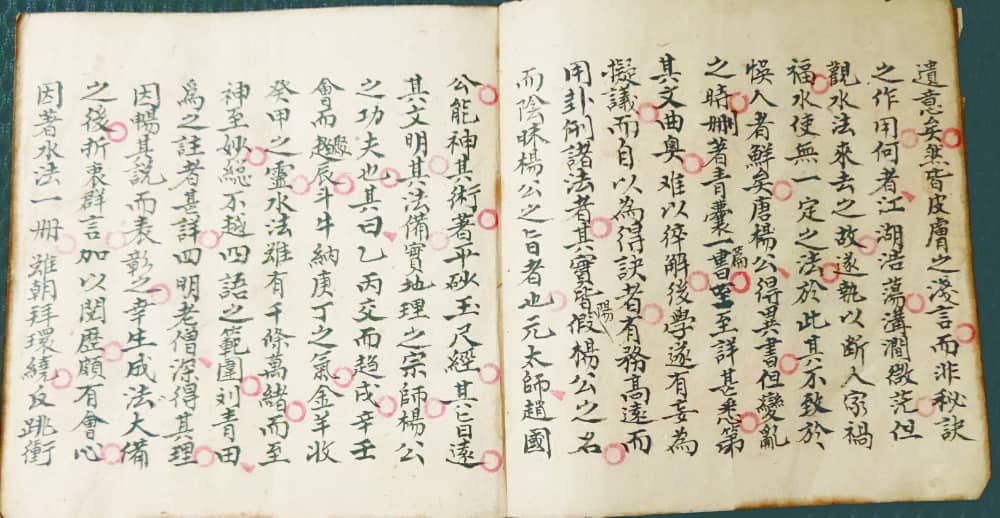 遺意矣無皆皮膚之淺言而非秘訣
之作用何者江湖浩蕩溝澗微茫但
觀水法來去之故遂執以断人家禍
福水使無一定之法於此其不致於
悞人者鮮矣唐楊公得異書但變亂
之時刪著青囊一篇書至至詳甚悉第
其文曲奥难以猝解後學遂有妄為
擬議而自以為得訣者有務高遠而
用卦例諸法者其實皆陽假楊公之名
而陰昧楊公之旨者也元太師趙國
公能神其術著平砂玉尺經其旨遠
其文明其法備實地理之宗師楊公
之功夫也其曰乙丙交而趋戌辛壬
會而趨聚辰斗牛納庚丁之氣金羊收
癸甲之靈水法雖有千條萬緒而至
神至妙總不越四語之範圍刘青田
為之註者甚詳四明老僧深得其理
因暢其說而表彰之幸生成法大備
之後折衷群言加以閱歷頗有會心
因著水法一冊雖朝拜環繞反跳衝